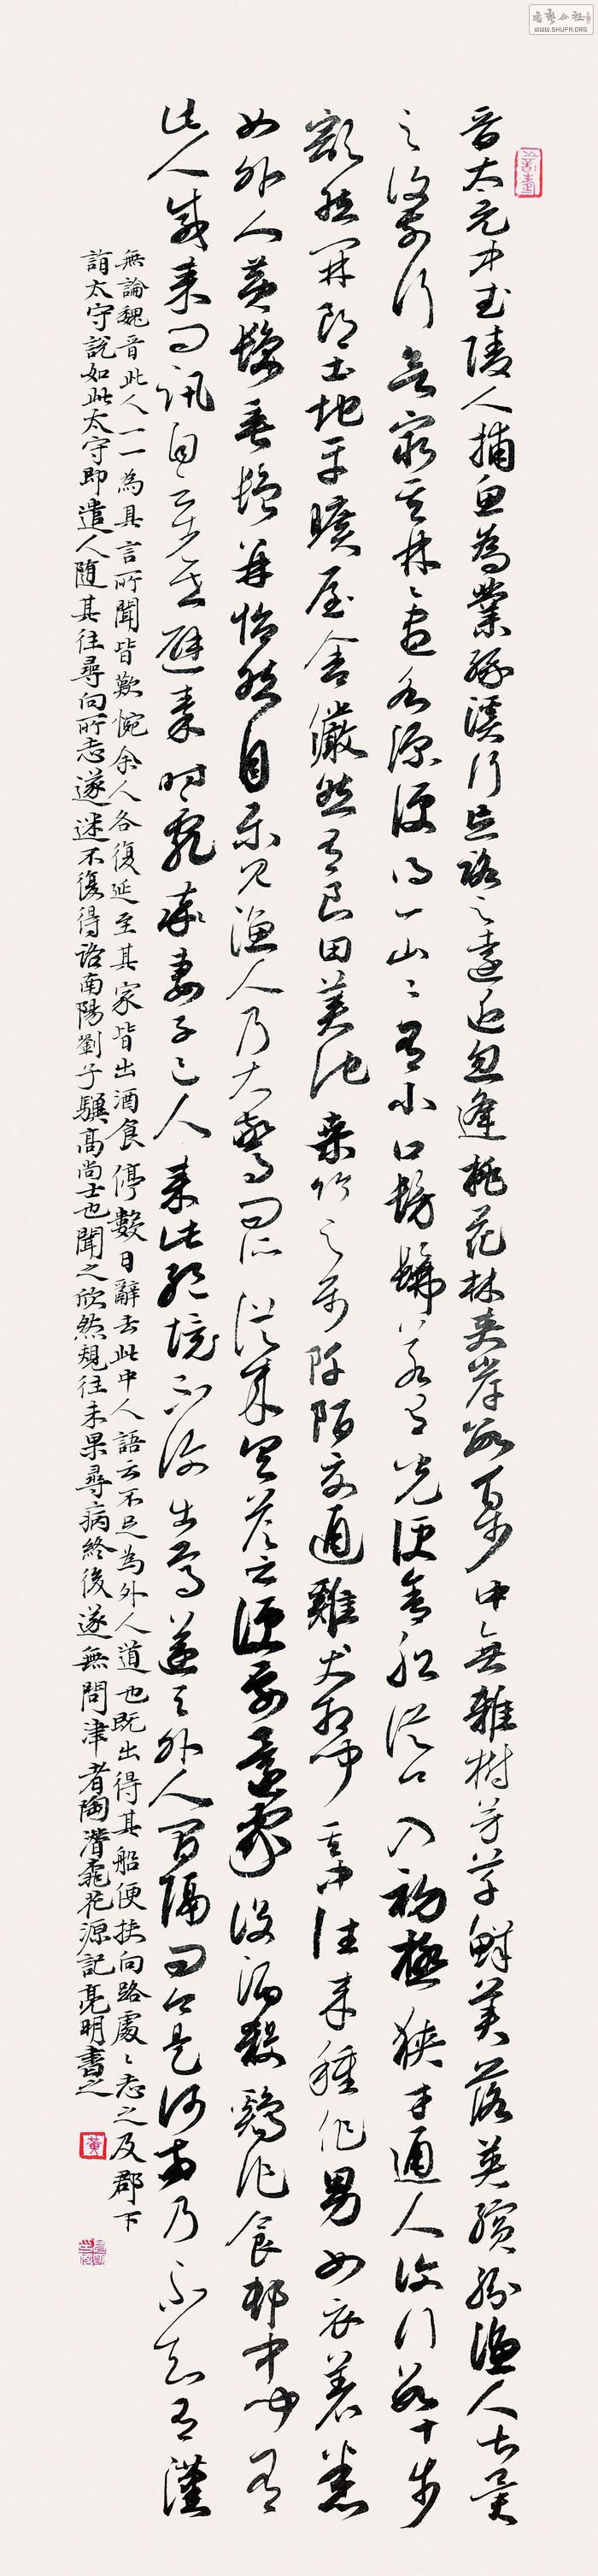 晋太元中武陵人捕鱼為業缘溪行忘路之遠近忽逢桃花林夹岸數百步中無雜樹芳草鮮美落英缤纷渔人甚異
之復前行欲窮其林林盡水源便得一山山有小口髣髴若有光便舍船從口入初極狭才通人復行數十步
豁然開朗土地平曠屋舍儼然有良田美池桑竹之属阡陌交通雞犬相闻其中往来種作男女衣着悉
如外人黄髮垂髫并怡然自樂見渔人乃大驚問所從来具答之便要還家设酒殺鷄作食邨中闻有
此人咸来问訊自云先世避秦时亂率妻子邑人来此绝境不復出焉遂与外人间隔问今是何世乃不知有漢
無論魏晋此人一一為具言所聞皆歎惋余人各復延至其家皆出酒食停數日辭去此中人語云不足為外人道也既出得其船便扶向路處〻志之及郡下
詣太守說如此太守即遣人随其往尋向所志遂迷不復得路南陽劉子驥高尚士也聞之欣然規往未果尋病終後遂無問津者陶潜桃花源記亮明書之
黄
WWW.SHUFA.ORG